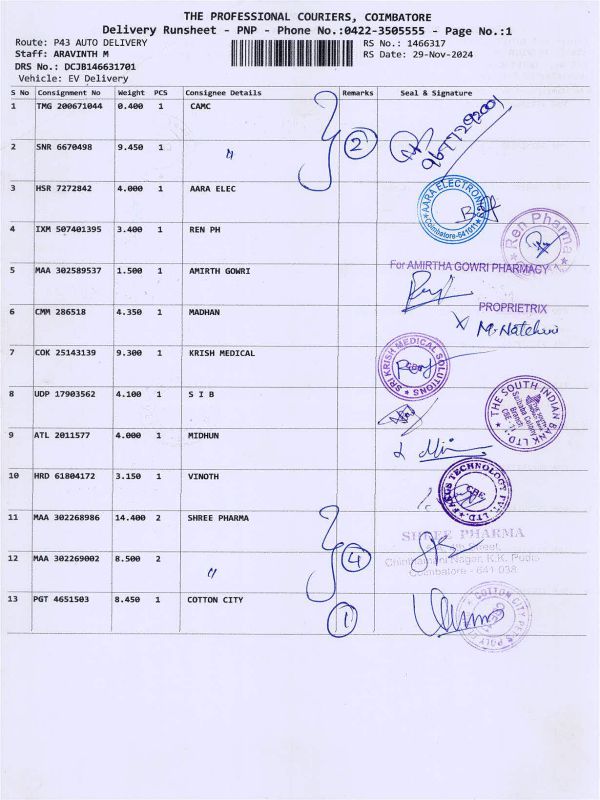 THE PROFESSIONAL COURIERS, COIMBATORE
Delivery Runsheet - PNP - Phone No.:0422-3505555 - Page No.:1
Route: P43 AUTO DELIVERY RS No.: 1466317
Staff: ARAVINTH M RS Date: 29-Nov-2024
DRS No.: DCJB146631701
Vehicle: EV Delivery
S No Consignment No Weight PCS Consignee Details Remarks Seal & Signature
1 TMG 200671044 0.400 1 CAMC
2 SNR 6670498 9.450 1 〃 2
3 HSR 7272842 4.000 1 AARA ELEC
AARA ELECTRONICS
Coimbatore-641011
4 IXM 507401395 3.400 1 REN PH
Ren Pharma
5 MAA 302589537 1.500 1 AMIRTH GOWRI
For AMIRTHA GOWRI PHARMACY
PROPRIETRIX
6 CMM 286518 4.350 1 MADHAN
7 COK 25143139 9.300 1 KRISH MEDICAL
SRI KRISH MEDICAL SOLUTIONS
8 UDP 17903562 4.100 1 S I B
THE SOUTH INDIAN BANK LTD.
9 ATL 2011577 4.000 1 MIDHUN
10 HRD 61804172 3.150 1 VINOTH
TECHNOLOGY PVT. LTD.
CBE
11 MAA 302268986 14.400 2 SHREE PHARMA
SHREE PHARMA
Street,
Nagar, K.K. Pudur
Coimbatore - 641 038
12 MAA 302269002 8.500 2 〃 4
13 PGT 4651503 8.450 1 COTTON CITY 1
COTTON CITY